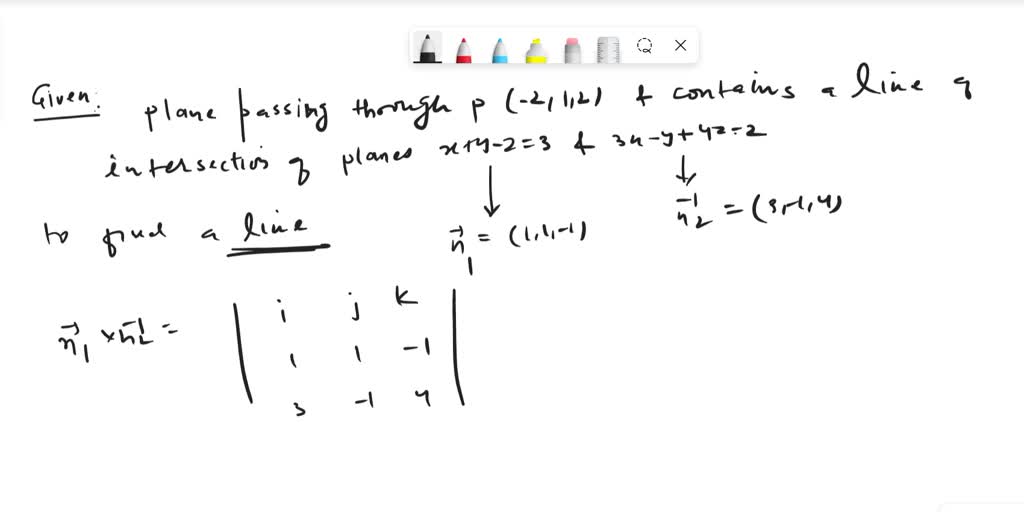 Given: plane passing through p (-2,1,2) & contains a line of
intersection of planes x+y-2=3 & 3x-y+4z=2
to find a line
n₁ = (1,1,-1)
n₂ = (3,-1,4)
n₁ × n₂ =
i j k
1 1 -1
3 -1 4